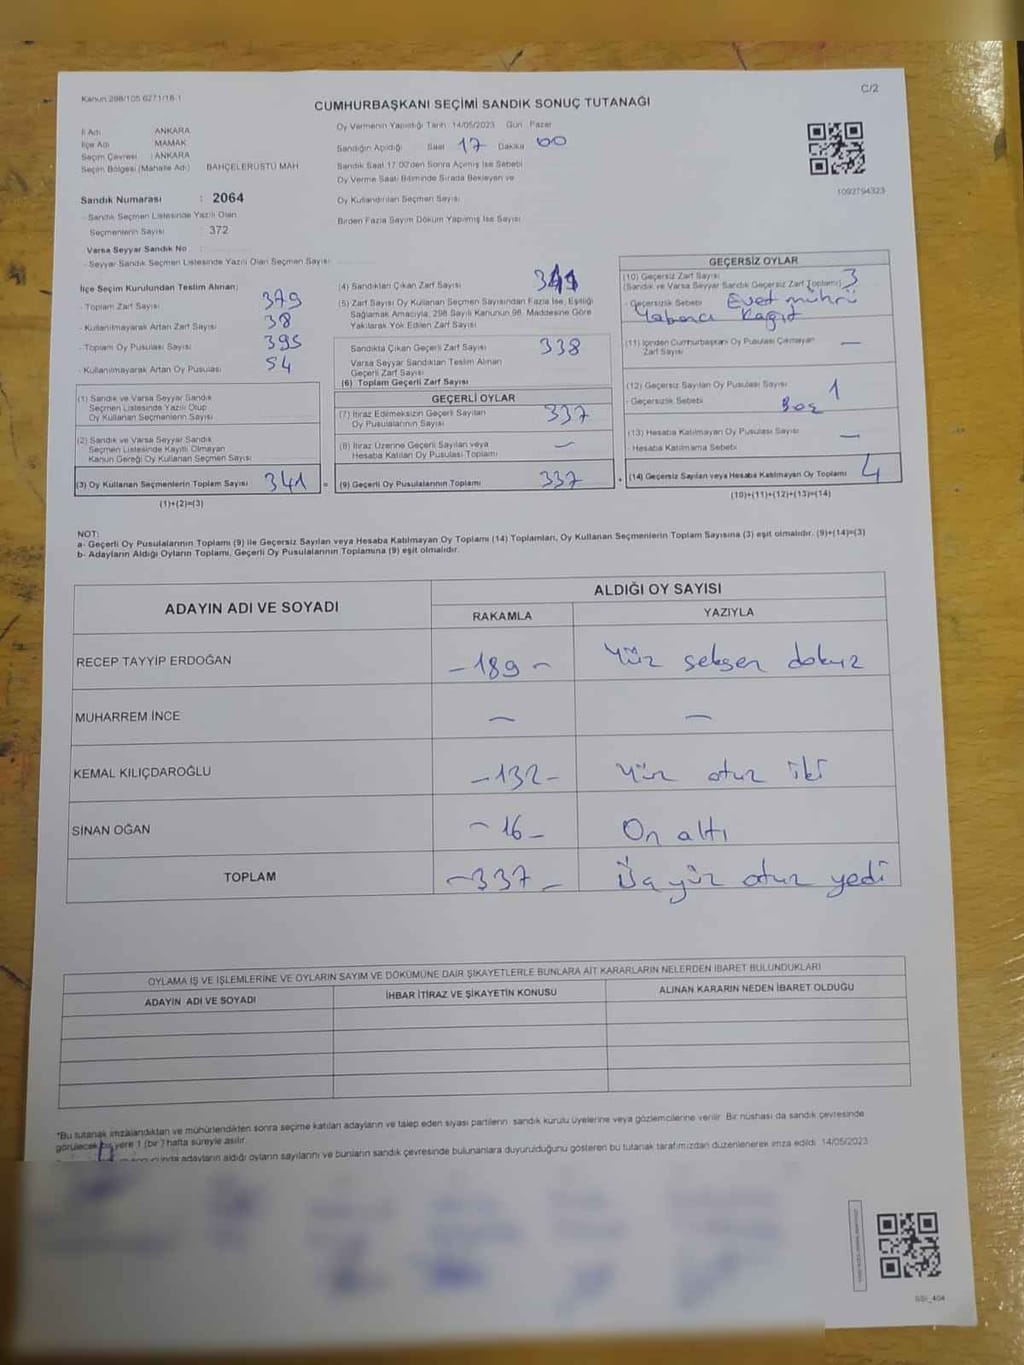 Kanun 298/105 6271/18-1
C/2
CUMHURBAŞKANI SEÇİMİ SANDIK SONUÇ TUTANAĞI
İl Adı ANKARA
İlçe Adı MAMAK
Seçim Çevresi : ANKARA
Seçim Bölgesi (Mahalle Adı) BAHÇELERÜSTÜ MAH
Sandık Numarası : 2064
- Sandık Seçmen Listesinde Yazılı Olan
Seçmenlerin Sayısı : 372
- Varsa Seyyar Sandık No
- Seyyar Sandık Seçmen Listesinde Yazılı Olan Seçmen Sayısı
Oy Vermenin Yapıldığı Tarih : 14/05/2023 Gün : Pazar
Sandığın Açıldığı Saat 17 Dakika 00
Sandık Saat 17.00'den Sonra Açılmış İse Sebebi
Oy Verme Saati Bitiminde Sırada Bekleyen ve
Oy Kullandırılan Seçmen Sayısı
Birden Fazla Sayım Döküm Yapılmış İse Sayısı
1092794323
İlçe Seçim Kurulundan Teslim Alınan;
- Toplam Zarf Sayısı 379
- Kullanılmayarak Artan Zarf Sayısı 38
- Toplam Oy Pusulası Sayısı 395
- Kullanılmayarak Artan Oy Pusulası 54
(1) Sandık ve Varsa Seyyar Sandık
Seçmen Listesinde Yazılı Olup
Oy Kullanan Seçmenlerin Sayısı
(2) Sandık ve Varsa Seyyar Sandık
Seçmen Listesinde Kayıtlı Olmayan
Kanun Gereği Oy Kullanan Seçmen Sayısı
(3) Oy Kullanan Seçmenlerin Toplam Sayısı 341 =
(1)+(2)=(3)
(4) Sandıktan Çıkan Zarf Sayısı 341
(5) Zarf Sayısı Oy Kullanan Seçmen Sayısından Fazla İse, Eşitliği
Sağlamak Amacıyla, 298 Sayılı Kanunun 98. Maddesine Göre
Yakılarak Yok Edilen Zarf Sayısı
Sandıkta Çıkan Geçerli Zarf Sayısı 338
Varsa Seyyar Sandıktan Teslim Alınan
Geçerli Zarf Sayısı
(6) Toplam Geçerli Zarf Sayısı
GEÇERLİ OYLAR
(7) İtiraz Edilmeksizin Geçerli Sayılan
Oy Pusulalarının Sayısı 337
(8) İtiraz Üzerine Geçerli Sayılan veya
Hesaba Katılan Oy Pusulası Toplamı —
(9) Geçerli Oy Pusulalarının Toplamı 337 +
GEÇERSİZ OYLAR
(10) Geçersiz Zarf Sayısı 3
(Sandık ve Varsa Seyyar Sandık Geçersiz Zarf Toplamı)
- Geçersizlik Sebebi Evet mührü
Yabancı Kağıt
(11) İçinden Cumhurbaşkanı Oy Pusulası Çıkmayan
Zarf Sayısı —
(12) Geçersiz Sayılan Oy Pusulası Sayısı 1
- Geçersizlik Sebebi Boş
(13) Hesaba Katılmayan Oy Pusulası Sayısı —
- Hesaba Katılmama Sebebi
(14) Geçersiz Sayılan veya Hesaba Katılmayan Oy Toplamı 4
(10)+(11)+(12)+(13)=(14)
NOT:
a- Geçerli Oy Pusulalarının Toplamı (9) ile Geçersiz Sayılan veya Hesaba Katılmayan Oy Toplamı (14) Toplamları, Oy Kullanan Seçmenlerin Toplam Sayısına (3) eşit olmalıdır. (9)+(14)=(3)
b- Adayların Aldığı Oyların Toplamı, Geçerli Oy Pusulalarının Toplamına (9) eşit olmalıdır.
ADAYIN ADI VE SOYADI
ALDIĞI OY SAYISI
RAKAMLA YAZIYLA
RECEP TAYYİP ERDOĞAN -189- Yüz seksen dokuz
MUHARREM İNCE — —
KEMAL KILIÇDAROĞLU -132- Yüz otuz iki
SİNAN OĞAN -16- On altı
TOPLAM -337- Üç yüz otuz yedi
OYLAMA İŞ VE İŞLEMLERİNE VE OYLARIN SAYIM VE DÖKÜMÜNE DAİR ŞİKAYETLERLE BUNLARA AİT KARARLARIN NELERDEN İBARET BULUNDUKLARI
ADAYIN ADI VE SOYADI İHBAR İTİRAZ VE ŞİKAYETİN KONUSU ALINAN KARARIN NEDEN İBARET OLDUĞU
*Bu tutanak imzalandıktan ve mühürlendikten sonra seçime katılan adayların ve talep eden siyasi partilerin sandık kurulu üyelerine veya gözlemcilerine verilir. Bir nüshası da sandık çevresinde
görülecek bir yere 1 (bir ) hafta süreyle asılır.
adayların aldığı oyların sayılarını ve bunların sandık çevresinde bulunanlara duyurulduğunu gösteren bu tutanak tarafımızdan düzenlenerek imza edildi. 14/05/2023
SSI_404